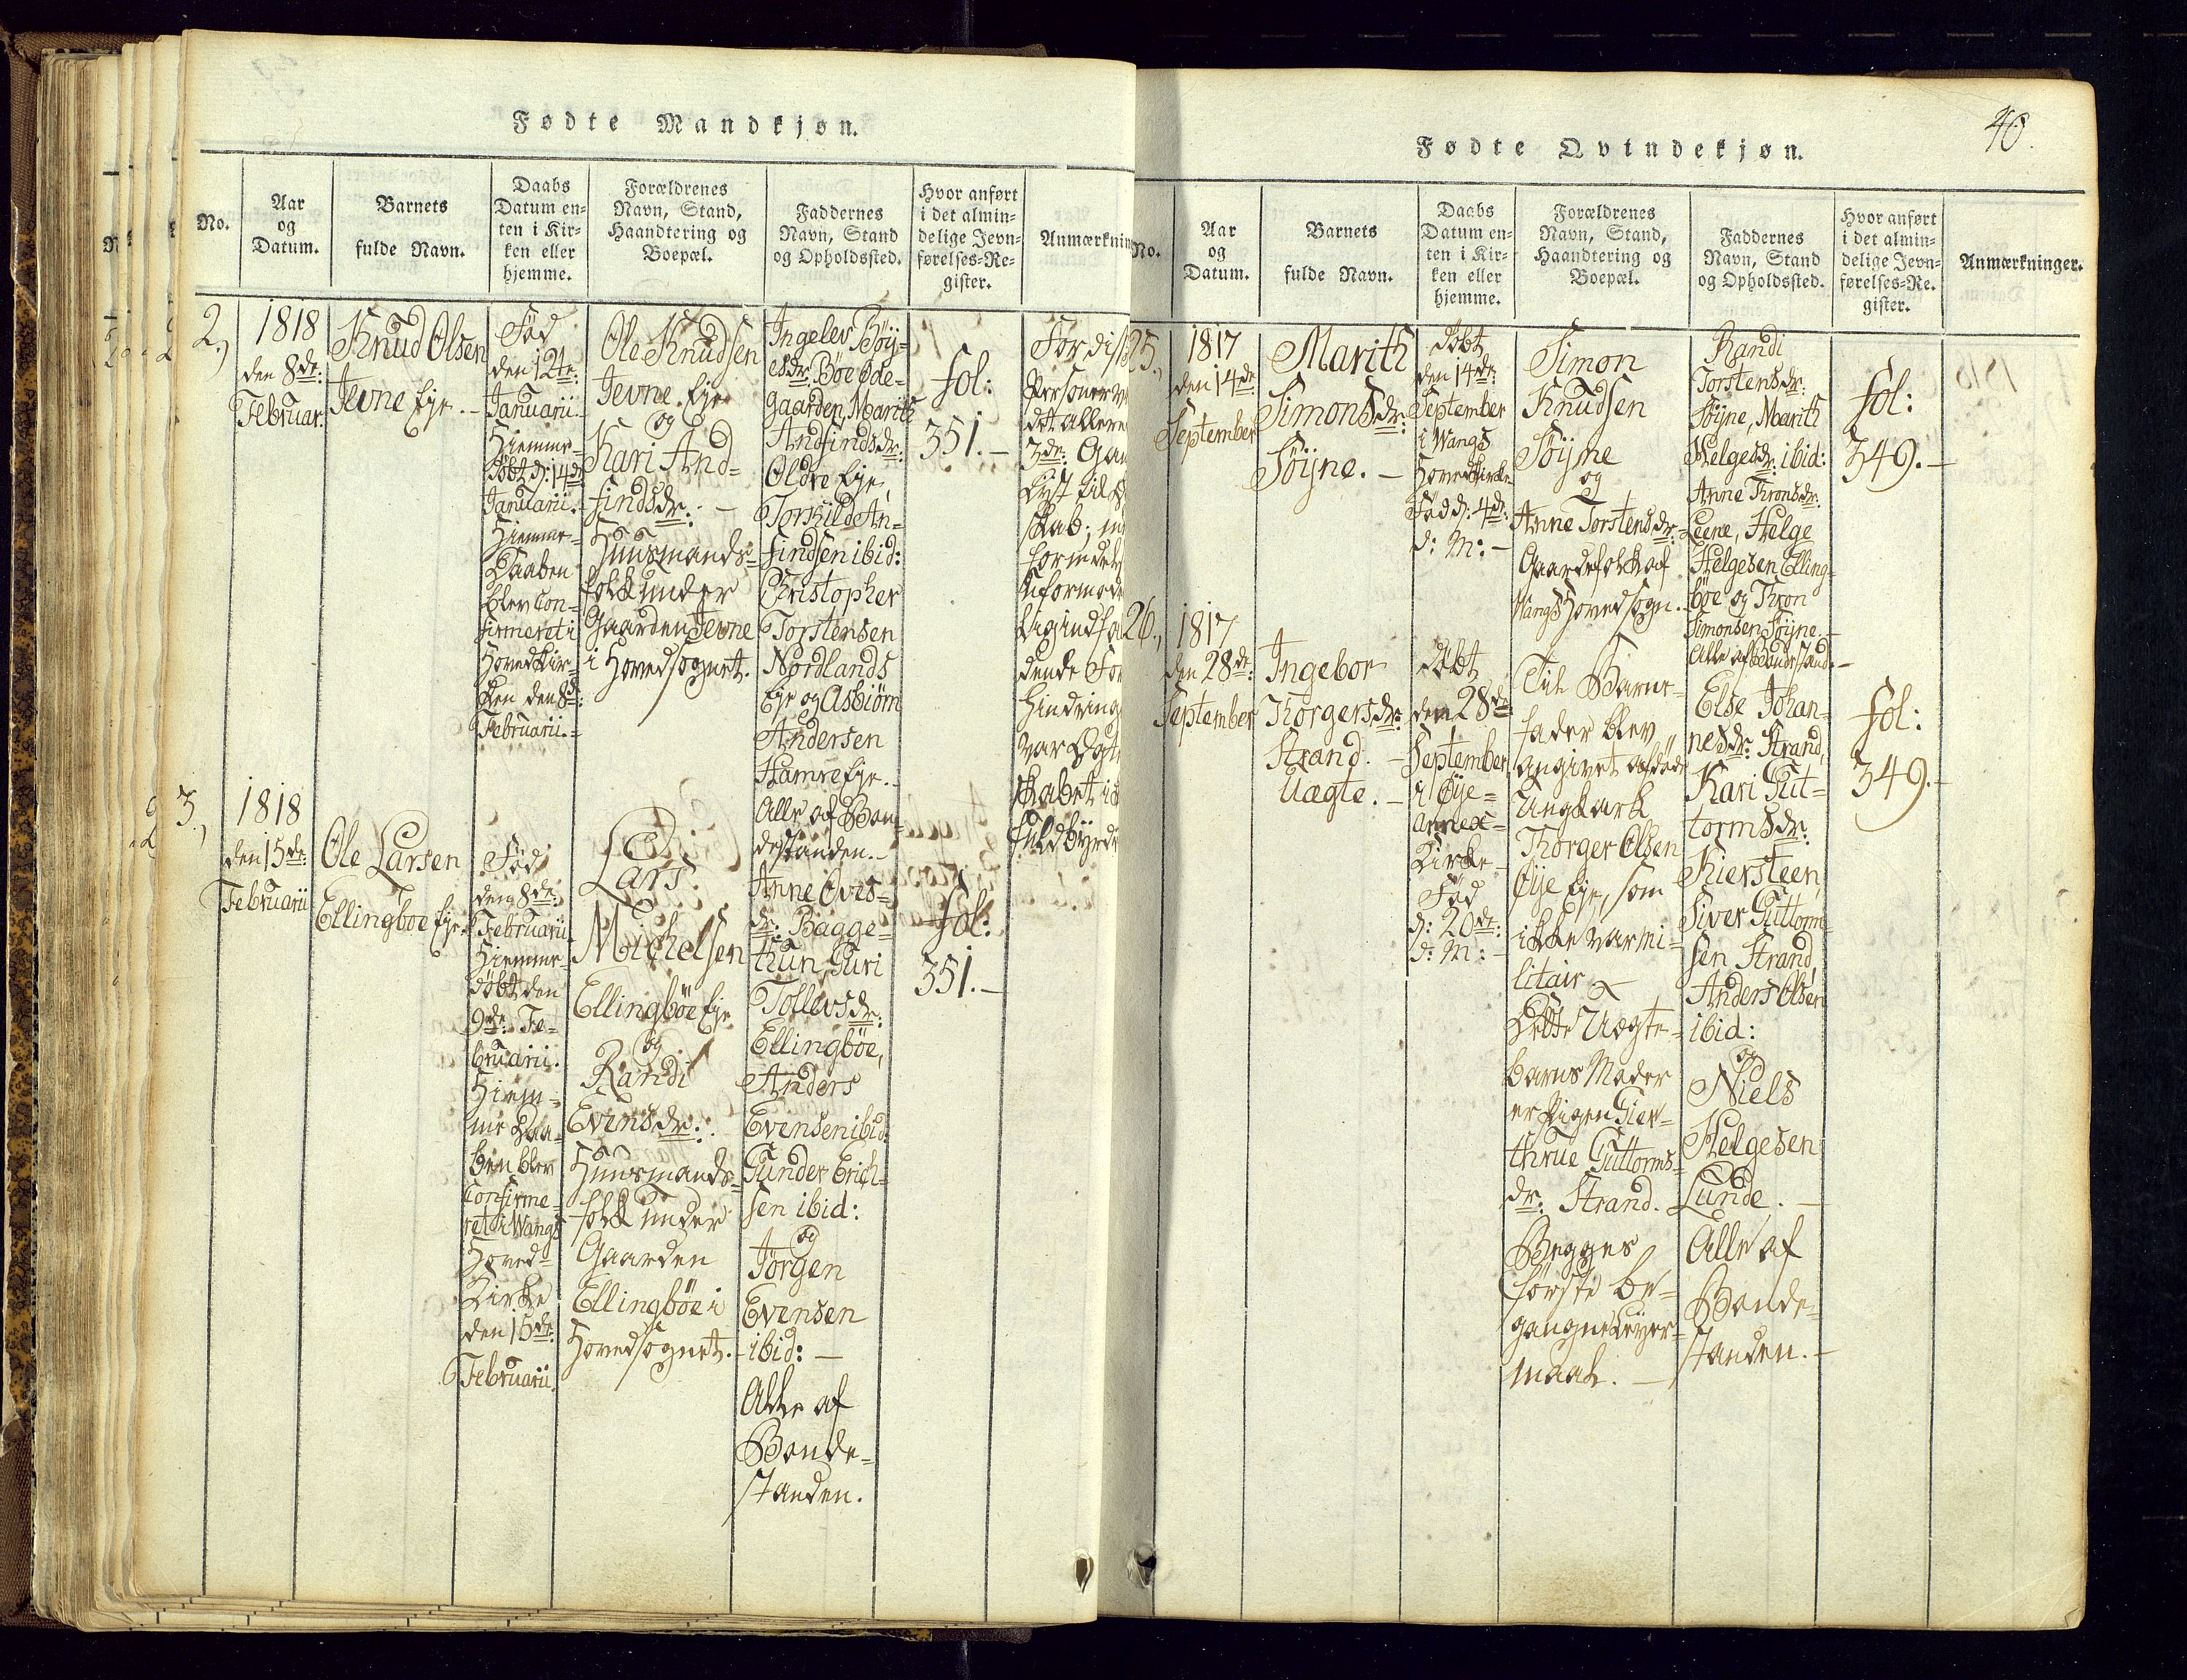 Fødte Mandkjøn.
No.
Aar
og
Datum.
Barnets
fulde Navn.
Daabs
Datum en-
ten i Kir-
ken eller
hjemme.
Forældrenes
Navn, Stand,
Haandtering og
Boepæl.
Faddernes
Navn, Stand
og Opholdssted.
Hvor anført
i det almin-
delige Jevn-
førelses-Re-
gister.
Anmærknin
2.,
1818
den 8de:
Februar.
Knud Olsen
Jevne Eje.-
Fød
den 12te:
Januarii.
Hiemme-
døbt d: 14de
Januarii.
Hiemme-
Daaben
blev Con-
firmeret i
Hovedkir-
ken den 8de:
Februarii.-
Ole Knudsen
Jevne Eje
og
Kari And-
findsdr:. -
Huusmands-
folk under
Gaarden Jevne
i Hovedsognet.
Ingeler Böÿ-
esdr: Böe Øde-
gaarden, Marith
Andfindsdr:
Oldre Eje,
Torkild An-
findsen ibid:
Christopher
Torstensen
Nordlands
Eje og Asbiörn
Andersen
Hamre Eje.-
Alle af Bon-
destanden.-
fol:
351.-
For diss
Personer v
det allere
3de: Ga
lyst til
skab; m
formedelst
uformode
dag indfa
dende For
hindring
var Ægte
skabet ik
fuldbyrde
3.,
1818
den 15de:
Februarii
Ole Larsen
Ellingboe Eje.
Fød
den 8de:
Februarii.
Hiemme-
døbt den
9de: Fe-
bruarii.
Hiem-
me Daa-
ben blev
Confirme-
ret i Wangs
Hoved-
Kirke
den 15de:
Februarii.
Lars
Michelsen
Ellingböe Eje
og
Randi
Evensdr:.
Huusmands-
folk under
Gaarden
Ellingböe i
Hovedsognet.
Anne Oves-
dr: Bagge-
thun, Guri
Tollevsdr:
Ellingböe,
Anders
Evensen ibid:
Gunder Erich-
sen ibid:
og
Jörgen
Evensen
ibid: -
Alle af
Bonde-
standen.
fol:
351.-
40.
Fødte Qvindekjøn.
No.
Aar
og
Datum.
Barnets
fulde Navn.
Daabs
Datum en-
ten i Kir-
ken eller
hjemme.
Forældrenes
Navn, Stand,
Haandtering og
Boepæl.
Faddernes
Navn, Stand
og Opholdssted.
Hvor anført
i det almin-
delige Jevn-
førelses-Re-
gister.
Anmærkninger.
25.,
1817
den 14de
September
Marith
Simonsdr:
Söÿne. -
Döbt
den 14de:
September
i Wangs
Hovedkirke
Fød d: 4de:
d: M: -
Simon
Knudsen
Söÿne
og
Anne Torstensdr:
Gaardefolk af
Wangs Hovedsogn.
Randi
Torstensdr:
Söÿne, Marith
Helgesdr: ibid:
Anne Thronsdr:
Leene, Helge
Helgesen Elling-
böe og Thron
Simonsen Söÿne.-
Alle af Bondestand.-
fol:
349.-
26.,
1817
den 28de:
September
Ingebor
Thorgersdr:
Strand. -
Uægte. -
Döbt
den 28de
September
i Öÿe-
Annex-
Kirke
Fød
d: 20de:
d: M: -
Til Barne-
fader blev
angivet afdøde
Ungkark
Thorger Olsen
Öÿe Eje, som
ikke var mi-
litair.
Dette Uægte-
barns Moder
er Pigen Gier-
thrue Guttorms-
dr: Strand.
Begges
første be-
gangne Leyer-
maal. -
Else Johan-
nesdr: Strand,
Kari Gut-
tormsdr:
Kiersteen,
Siver Guttorm-
sen Strand,
Anders Olsen
ibid:
og
Niels
Helgesen
Lunde. -
Alle af
Bonde-
standen. -
fol:
349.-